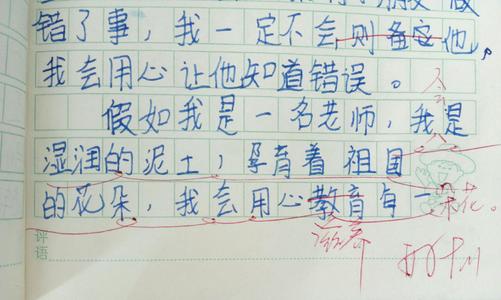 错了事，我一定不会则备它他，
我会用心让他知道错误。
假如我是一名老师，我是
湿润的泥土，孕育着祖国
的花朵，我会用心教育每一朵花。
评语
滋养